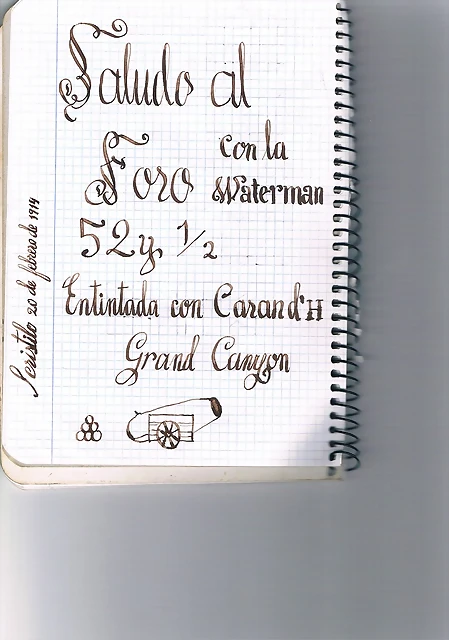 Saludo al
Foro con la
Waterman
52 y 1/2
Entintada con Carand'H
Grand Canyon
Peristilo 20 de febrero de 1914